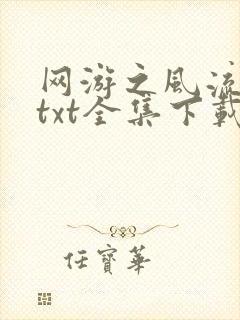 网游之风流
txt全集下载
任宝华